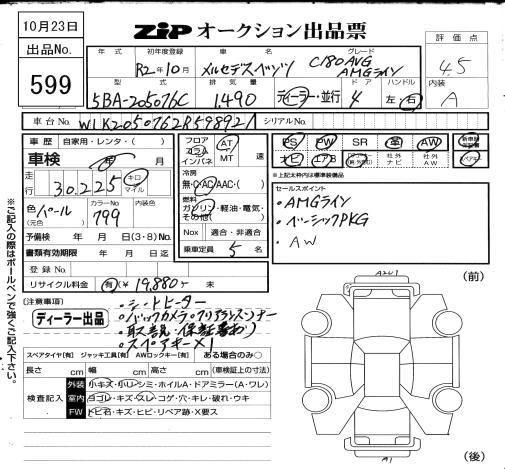 10月23日
ZIP オークション出品票
出品No.
599
年式
初年度登録
R2年10月
車名
メルセデスベンツ
グレード
C180 AVG
AMGライン
評価点
4.5
型式
5BA-205076C
排気量
1,490
ディーラー・並行
ドア
4
ハンドル
左・右
内装
A
車台No.
W1K2050762R598921
シリアルNo.
車歴 自家用・レンタ・( )
車検 年 月
走行 30,225 キロ マイル
色(元色) パール
カラーNo. 799
内装色
予備検 年 月 日(3・8)No.
書類有効期限 年 月 日迄
登録No.
リサイクル料金 有(¥ 19,880 ) 未
フロア
コラム
インパネ
AT
MT
速
冷房
無・C・AC・AAC・( )
燃料
ガソリン・軽油・電気・
その他( )
Nox 適合・非適合
乗車定員 5 名
PS PW SR 革 AW 新車時保証書
ナビ エアB 社外ナビ 社外AW スペアキー
※上記太枠内は標準装備品
セールスポイント
・AMGライン
・ベーシックPKG
・AW
[注意事項]
ディーラー出品
・シートヒーター
・バックカメラ・クリアランスソナー
・取説・保証書有り
・スペアキー×1
スペアタイヤ[有] ジャッキ工具[有] AWロックキー[有] ある場合のみ○
長さ cm 幅 cm 高さ cm (車検証上の寸法)
検査記入
外装 小キズ・小リ・シミ・ホイルA・ドアミラー(A・ワレ)
室内 ヨゴレ・キズ・スレ・コゲ・穴・キレ・破れ・ウキ
FW トビ石・キズ・ヒビ・リペア跡・X要ス
※ご記入の際はボールペンで強くご記入下さい。
(前)
(後)
A1